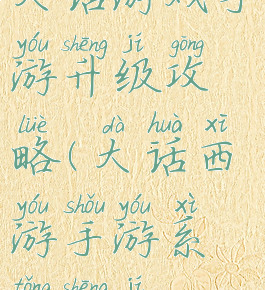 大话游戏手
yóu shēng jí gōng
游升级攻
lüè dà huà xī
略(大话西
yóu shǒu yóu xì
游手游系
tǒng shēng jí